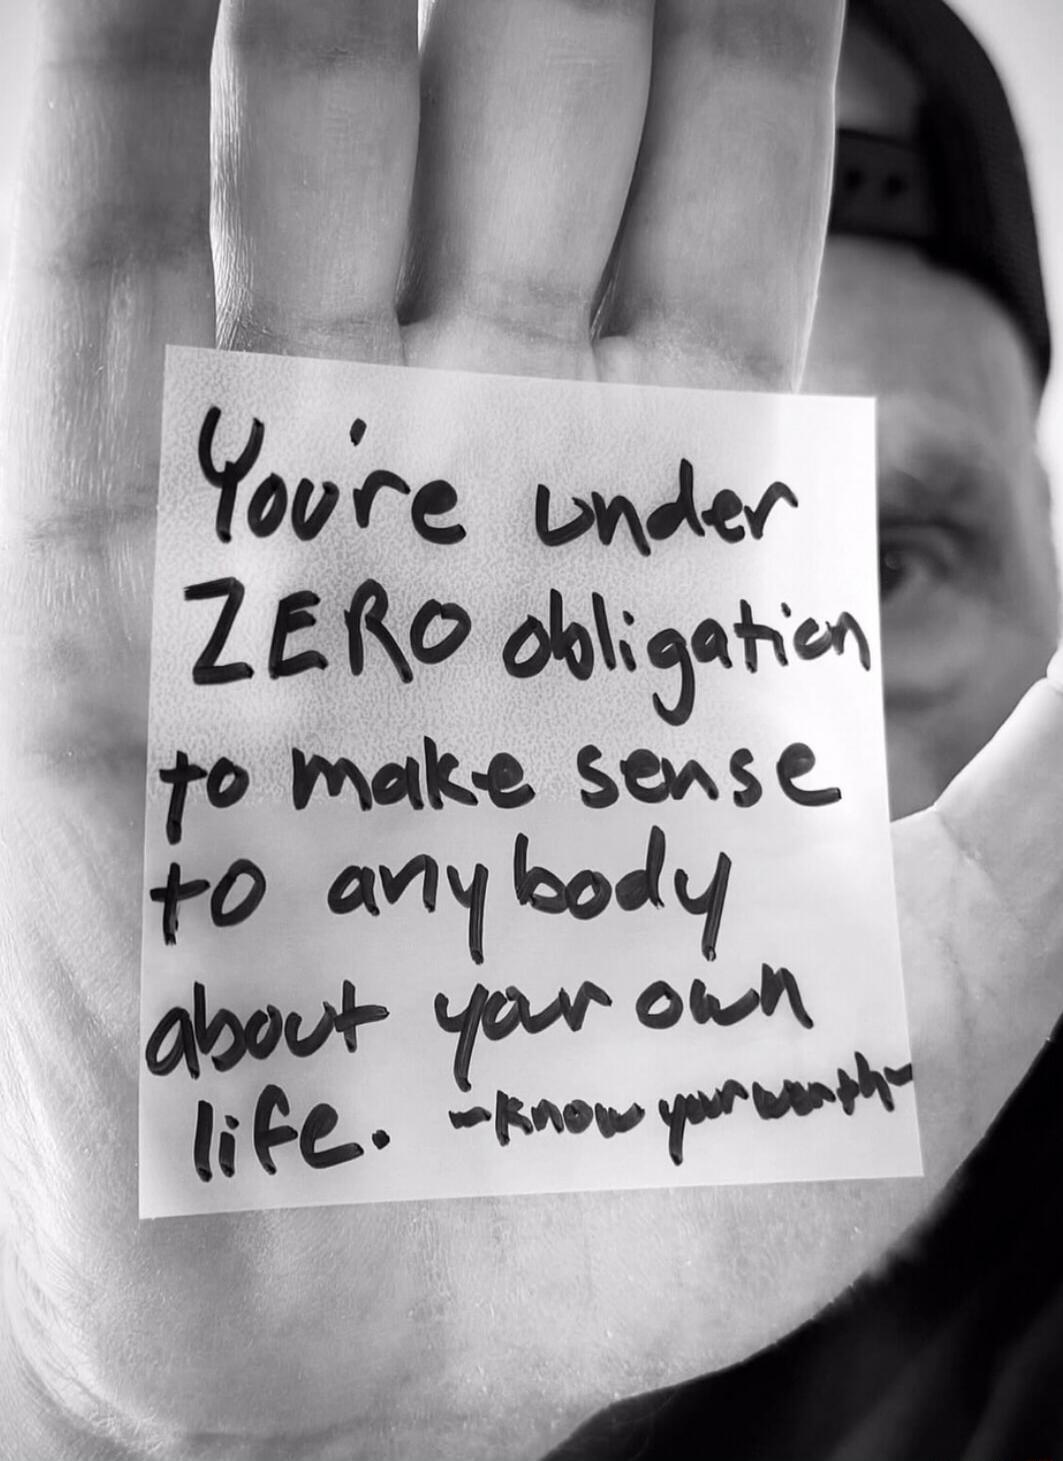 You're under
ZERO obligation
to make sense
to anybody
about your own
life. -know your worth-